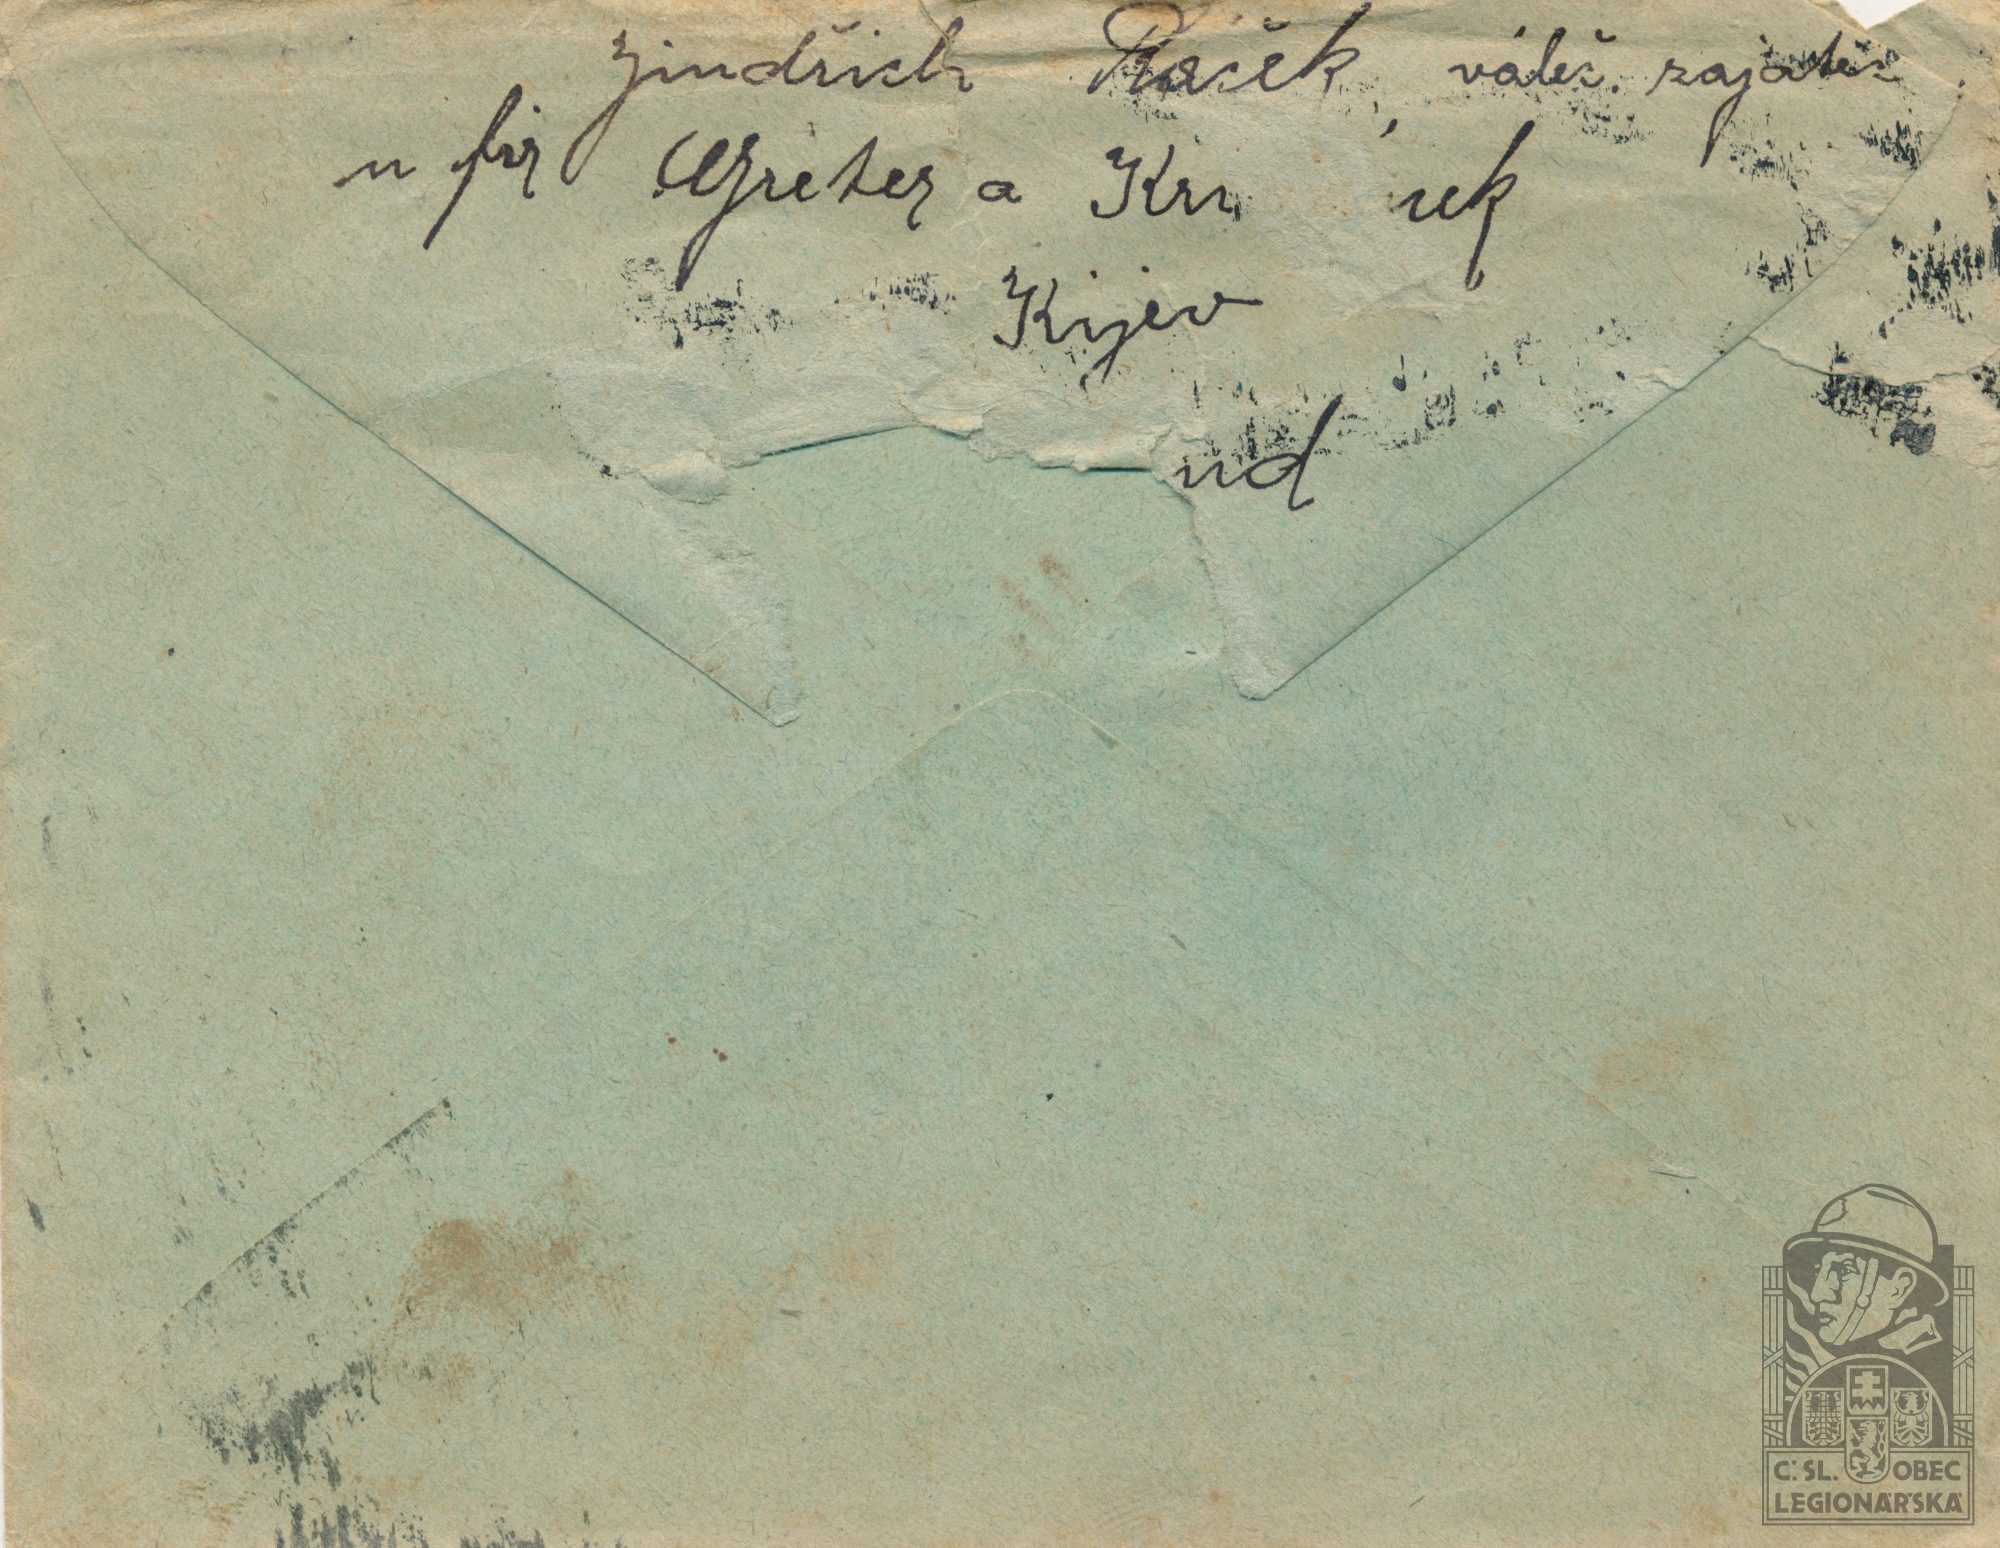 Jindřich Plaček, váleč. zajatec
u fir Greter a Kri nek
Kijev
ud
Č. SL. OBEC
LEGIONÁŘSKÁ